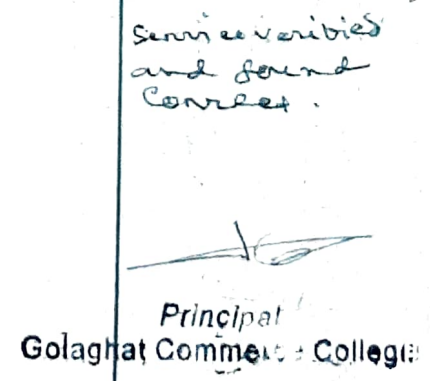 Service verified
and found
Correct.
Principal
Golaghat Commerce College